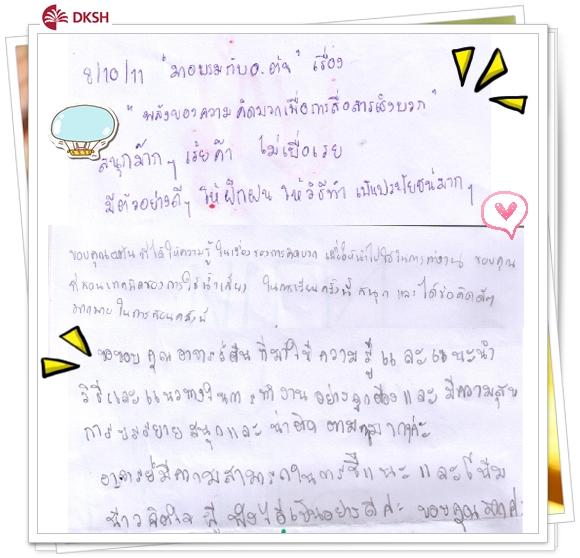 DKSH
8/10/11 "มาอบรมกับอ.ต้น" เรื่อง
"พลังของความคิดบวกเพื่อการสื่อสารเชิงบวก"
สนุกม๊าก ๆ เร้ยค๊า ไม่เบื่อเรย
มีตัวอย่างดีๆ ให้ฝึกฝน ให้วิธีทำ เป็นประโยชน์มาก ๆ
ขอบคุณ ที่ได้ให้ความรู้ ในเรื่องของการคิดบวก เพื่อให้นำไปใช้ในการทำงาน ขอบคุณ
ที่สอนเทคนิคของการใช้น้ำเสียง ในการเรียนครั้งนี้ สนุก และได้ข้อคิดดีๆ
มากมาย ในการเรียนครั้งนี้
ขอขอบคุณอาจารย์ต้น ที่มาให้ความรู้ และแนะนำ
วิธีและแนวทางในการทำงานอย่างถูกต้องและมีความสุข
การบรรยายสนุกและน่าติดตามมากค่ะ
อาจารย์มีความสามารถในการชี้แนะและโน้ม
น้าวจิตใจผู้ฟังได้เป็นอย่างดีค่ะ ขอบคุณมากค่ะ